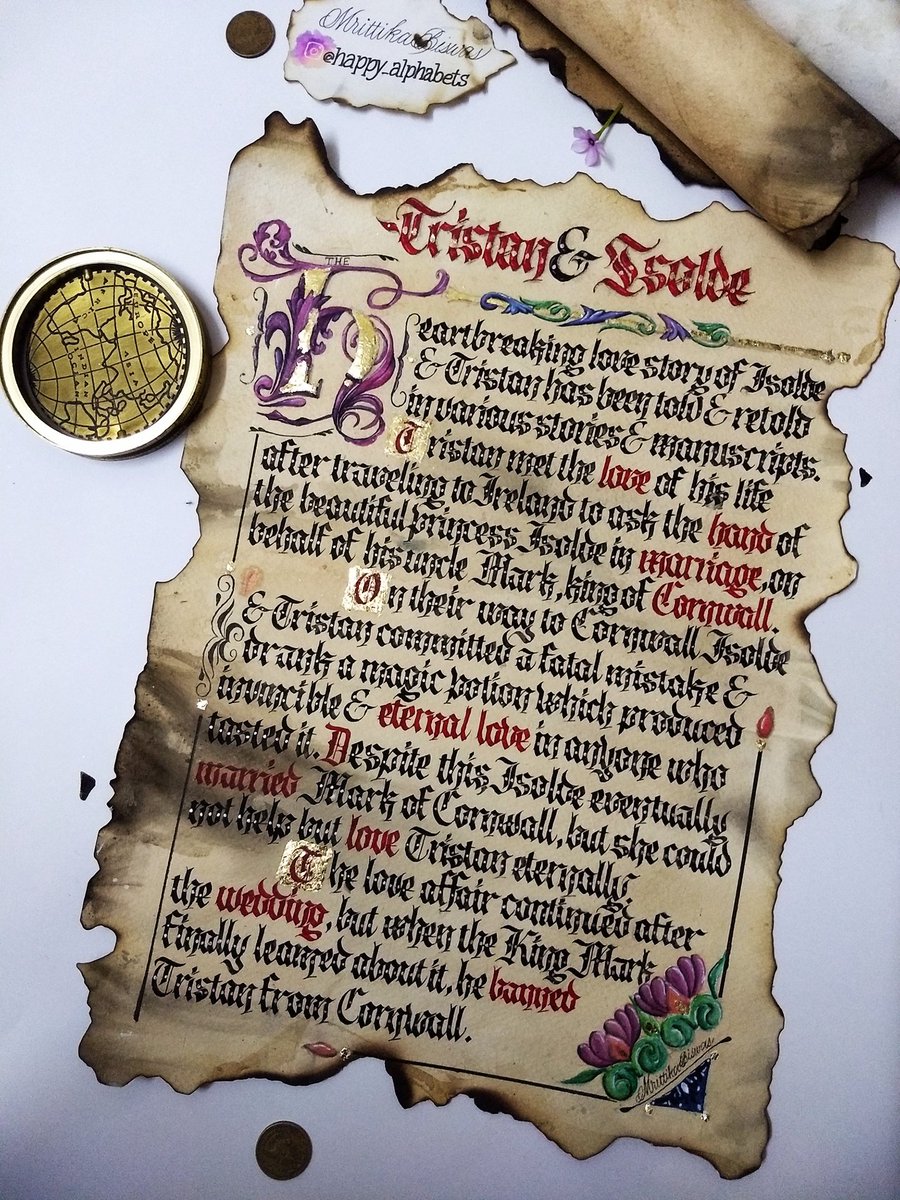 Mrittika Biswas
@happy_alphabets
Tristan & Isolde
THE
Heartbreaking love story of Isolde
& Tristan has been told & retold
in various stories & manuscripts.
Tristan met the love of his life
after traveling to Ireland to ask the hand of
the beautiful princess Isolde in marriage, on
behalf of his uncle Mark, king of Cornwall.
On their way to Cornwall Isolde
& Tristan committed a fatal mistake &
drank a magic potion which produced
invincible & eternal love in anyone who
tasted it. Despite this Isolde eventually
married Mark of Cornwall, but she could
not help but love Tristan eternally.
The love affair continued after
the wedding, but when the King Mark
finally learned about it, he banned
Tristan from Cornwall.
Mrittika Biswas